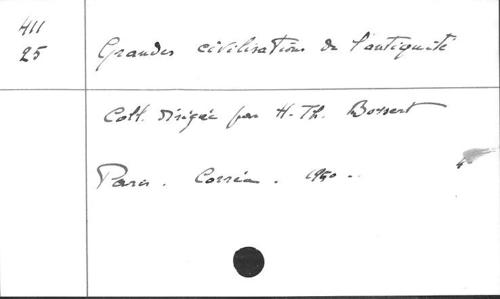 411
25
Grandes civilisations de l'antiquité
Coll. dirigée par H. Th. Bossert
Paris. Corréa. 1950.
4°